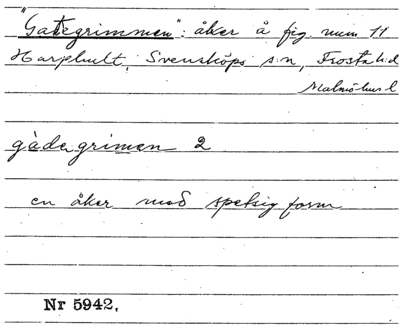 "Gategrimmen": åker å fig. num 11
Harphult, Svensköps s:n, Frosta h:d
Malmöhus l
gàdagrimen 2
en åker med spetsig form
Nr 5942.